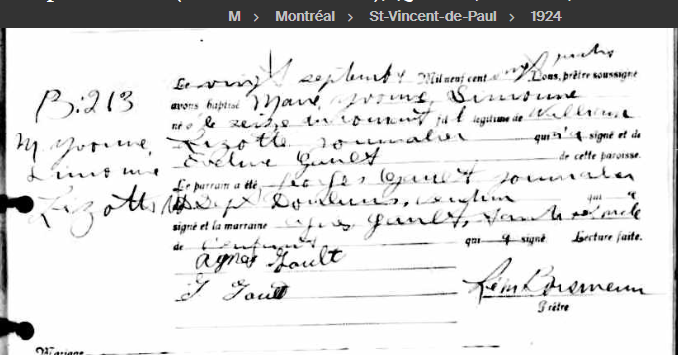 M > Montréal > St-Vincent-de-Paul > 1924
Le vingt septembre Mil neuf cent vingt quatre Nous, prêtre soussigné
B. 213
avons baptisé Marie, Yvonne, Simonne
né le seize du courant fil légitime de William
M. Yvonne,
Simonne
Lizotte
Lizotte journalier qui a signé et de
Gault de cette paroisse.
Le parrain a été, Gault journalier
Sept Douleurs, cousin qui a
signé et la marraine Agnes Gault, tante
de l'enfant qui a signé. Lecture faite.
Agnes Gault
J Gault
Prêtre
Mariage